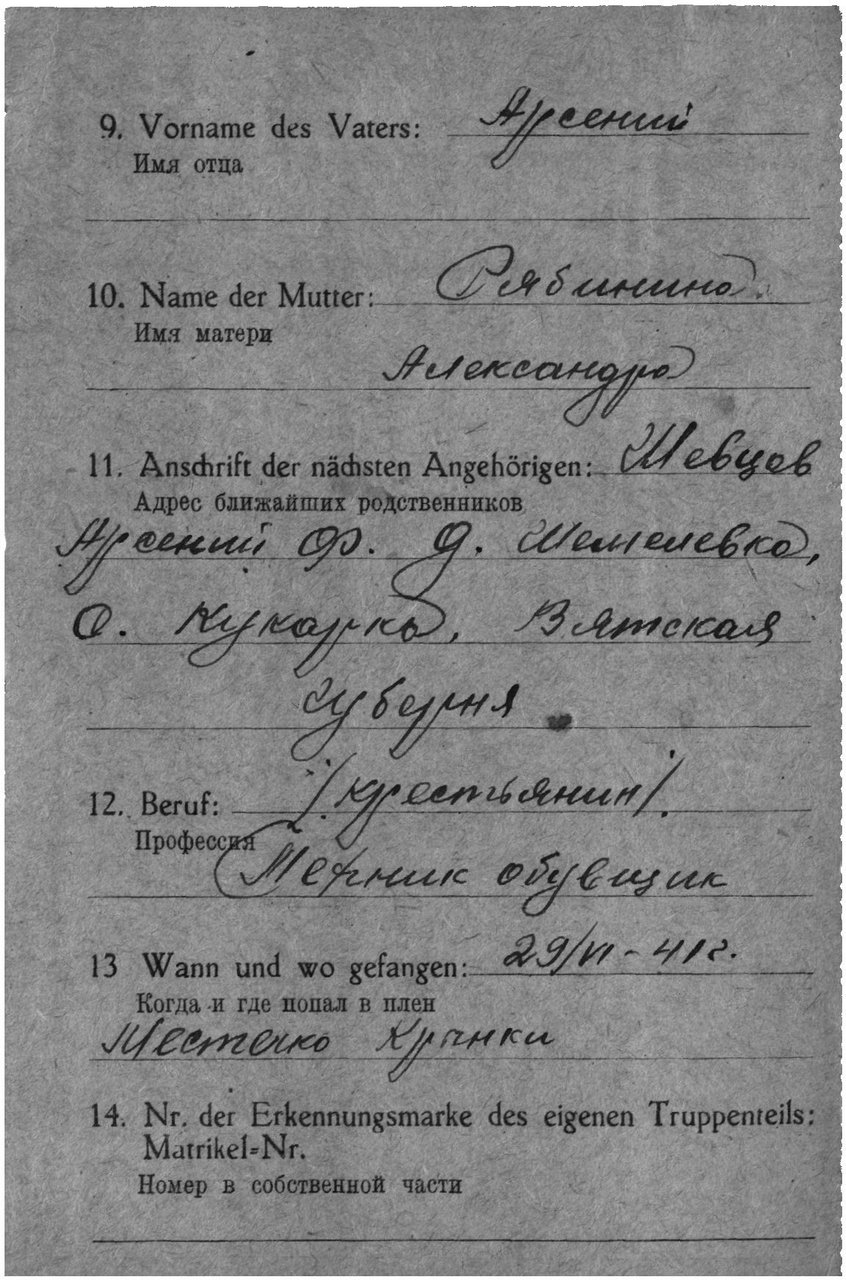 9. Vorname des Vaters: Арсений
Имя отца
10. Name der Mutter: Рябинина
Имя матери
Александра
11. Anschrift der nächsten Angehörigen: Шевцов
Адрес ближайших родственников
Арсений Ф. Д. Шемелевка,
С. Кукарка, Вятская
Губерня
12. Beruf: /крестьянин/.
Профессия
Техник обувщик
13 Wann und wo gefangen: 29/VI - 41 г.
Когда и где попал в плен
Местечко Крынки
14. Nr. der Erkennungsmarke des eigenen Truppenteils:
Matrikel=Nr.
Номер в собственной части